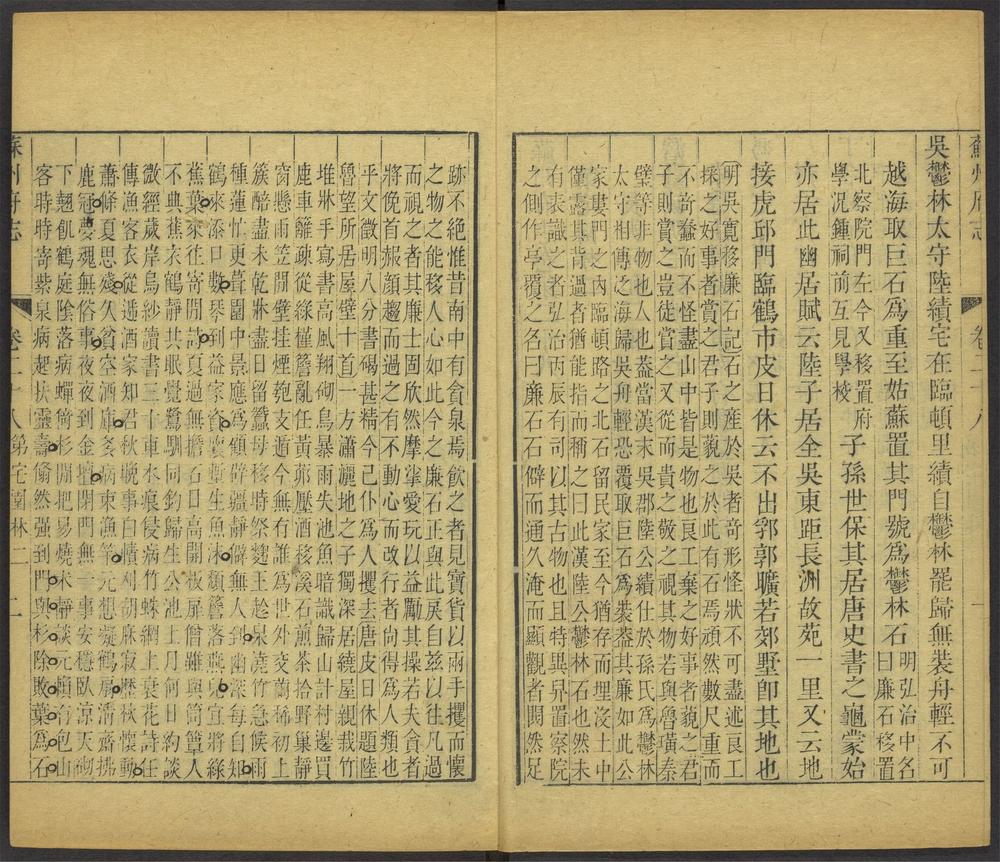 蘇州府志 卷二十八 一
吳鬱林太守陸績宅在臨頓里績自鬱林罷歸無裝舟輕不可
越海取巨石爲重至姑蘇置其門號爲鬱林石
明弘治中名
曰廉石移置
北察院門左今又移置府
學况鍾祠前互見學校
子孫世保其居唐史書之龜蒙始
亦居此幽居賦云陸子居全吳東距長洲故苑一里又云地
接虎邱門臨鶴市皮日休云不出郛郭曠若郊墅卽其地也
明吳寬移廉石記石之産於吳者奇形怪狀不可盡述良工
採之好事者賞之君子則藐之於此有石焉頑然數尺重而
不奇蠢而不怪盡山中皆是物也良工棄之好事者藐之君
子則賞之豈徒賞之又從而貴之敬之視其物若與魯璜秦
璧等非物也人也蓋當漢末吳郡陸公績仕於孫氏爲鬱林
太守相傳之海歸吳舟輕恐覆取巨石爲裝蓋其廉如此公
家婁門之內臨頓路之北石留民家至今猶存而埋沒土中
僅露其背過者猶能指而稱之曰此漢陸公鬱林石也然未
有表識之者弘治丙辰有司以其古物也且特異舁置察院
之側作亭覆之名曰廉石石僻而通久淹而顯觀者閧然足
跡不絕惟昔南中有貪泉焉飮之者見寶貨以兩手攫而懷
之物之能移人心如此今之廉石正與此戾自兹以往凡過
而視之者其廉士固欣然摩挲愛玩以益勵其操若夫貪者
將俛首赧顏趨而過之有不動心而改行者尙得爲人類也
乎文徵明八分書碣甚精今己仆爲人攫去唐皮日休題陸
魯望所居屋壁十首一方瀟灑地之子獨深居繞屋親栽竹
堆牀手寫書高風翔砌鳥暴雨失池魚暗識歸山計村邊買
鹿車籬疎從綠槿簷亂任黃茆壓酒移溪石煎茶拾野巢靜
窗懸雨笠閒壁挂煙匏支遁今無骨誰爲世外交蘭稀初上
簇醅盡未乾牀盡日留蠶母移時祭麴王趁泉澆竹急候雨
種蓮忙更葺園中景應爲顧辟疆靜僻無人到幽深每自知
鶴來添口數琴到益家資壞塹生魚沫頹簷落燕兒宜將綠
蕉葉來往寄閒詩夏過無擔石日高開板扉僧雖與筒簟人
不典蕉衣鶴靜共眠覺鷺馴同釣歸生公池上月何日約談
微經歲岸烏紗讀書三十車水痕侵病竹蛛網上衰花詩任
傳漁客衣從遞酒家知君秋晩事白幘刈胡麻寂歷秋懷動
蕭條夏思殘久貧空酒庫多病束漁竿元想凝鶴扇淸齋拂
鹿冠夢魂無俗事夜夜到金壇閉門無一事安穩臥涼天砌
下翹飢鶴庭陰落病蟬倚杉閒把易燒朮靜談元賴有包山
客時時寄紫泉病起扶靈壽翛然强到門與杉除敗葉爲石
蘇州府志 卷二十八第宅園林二 二